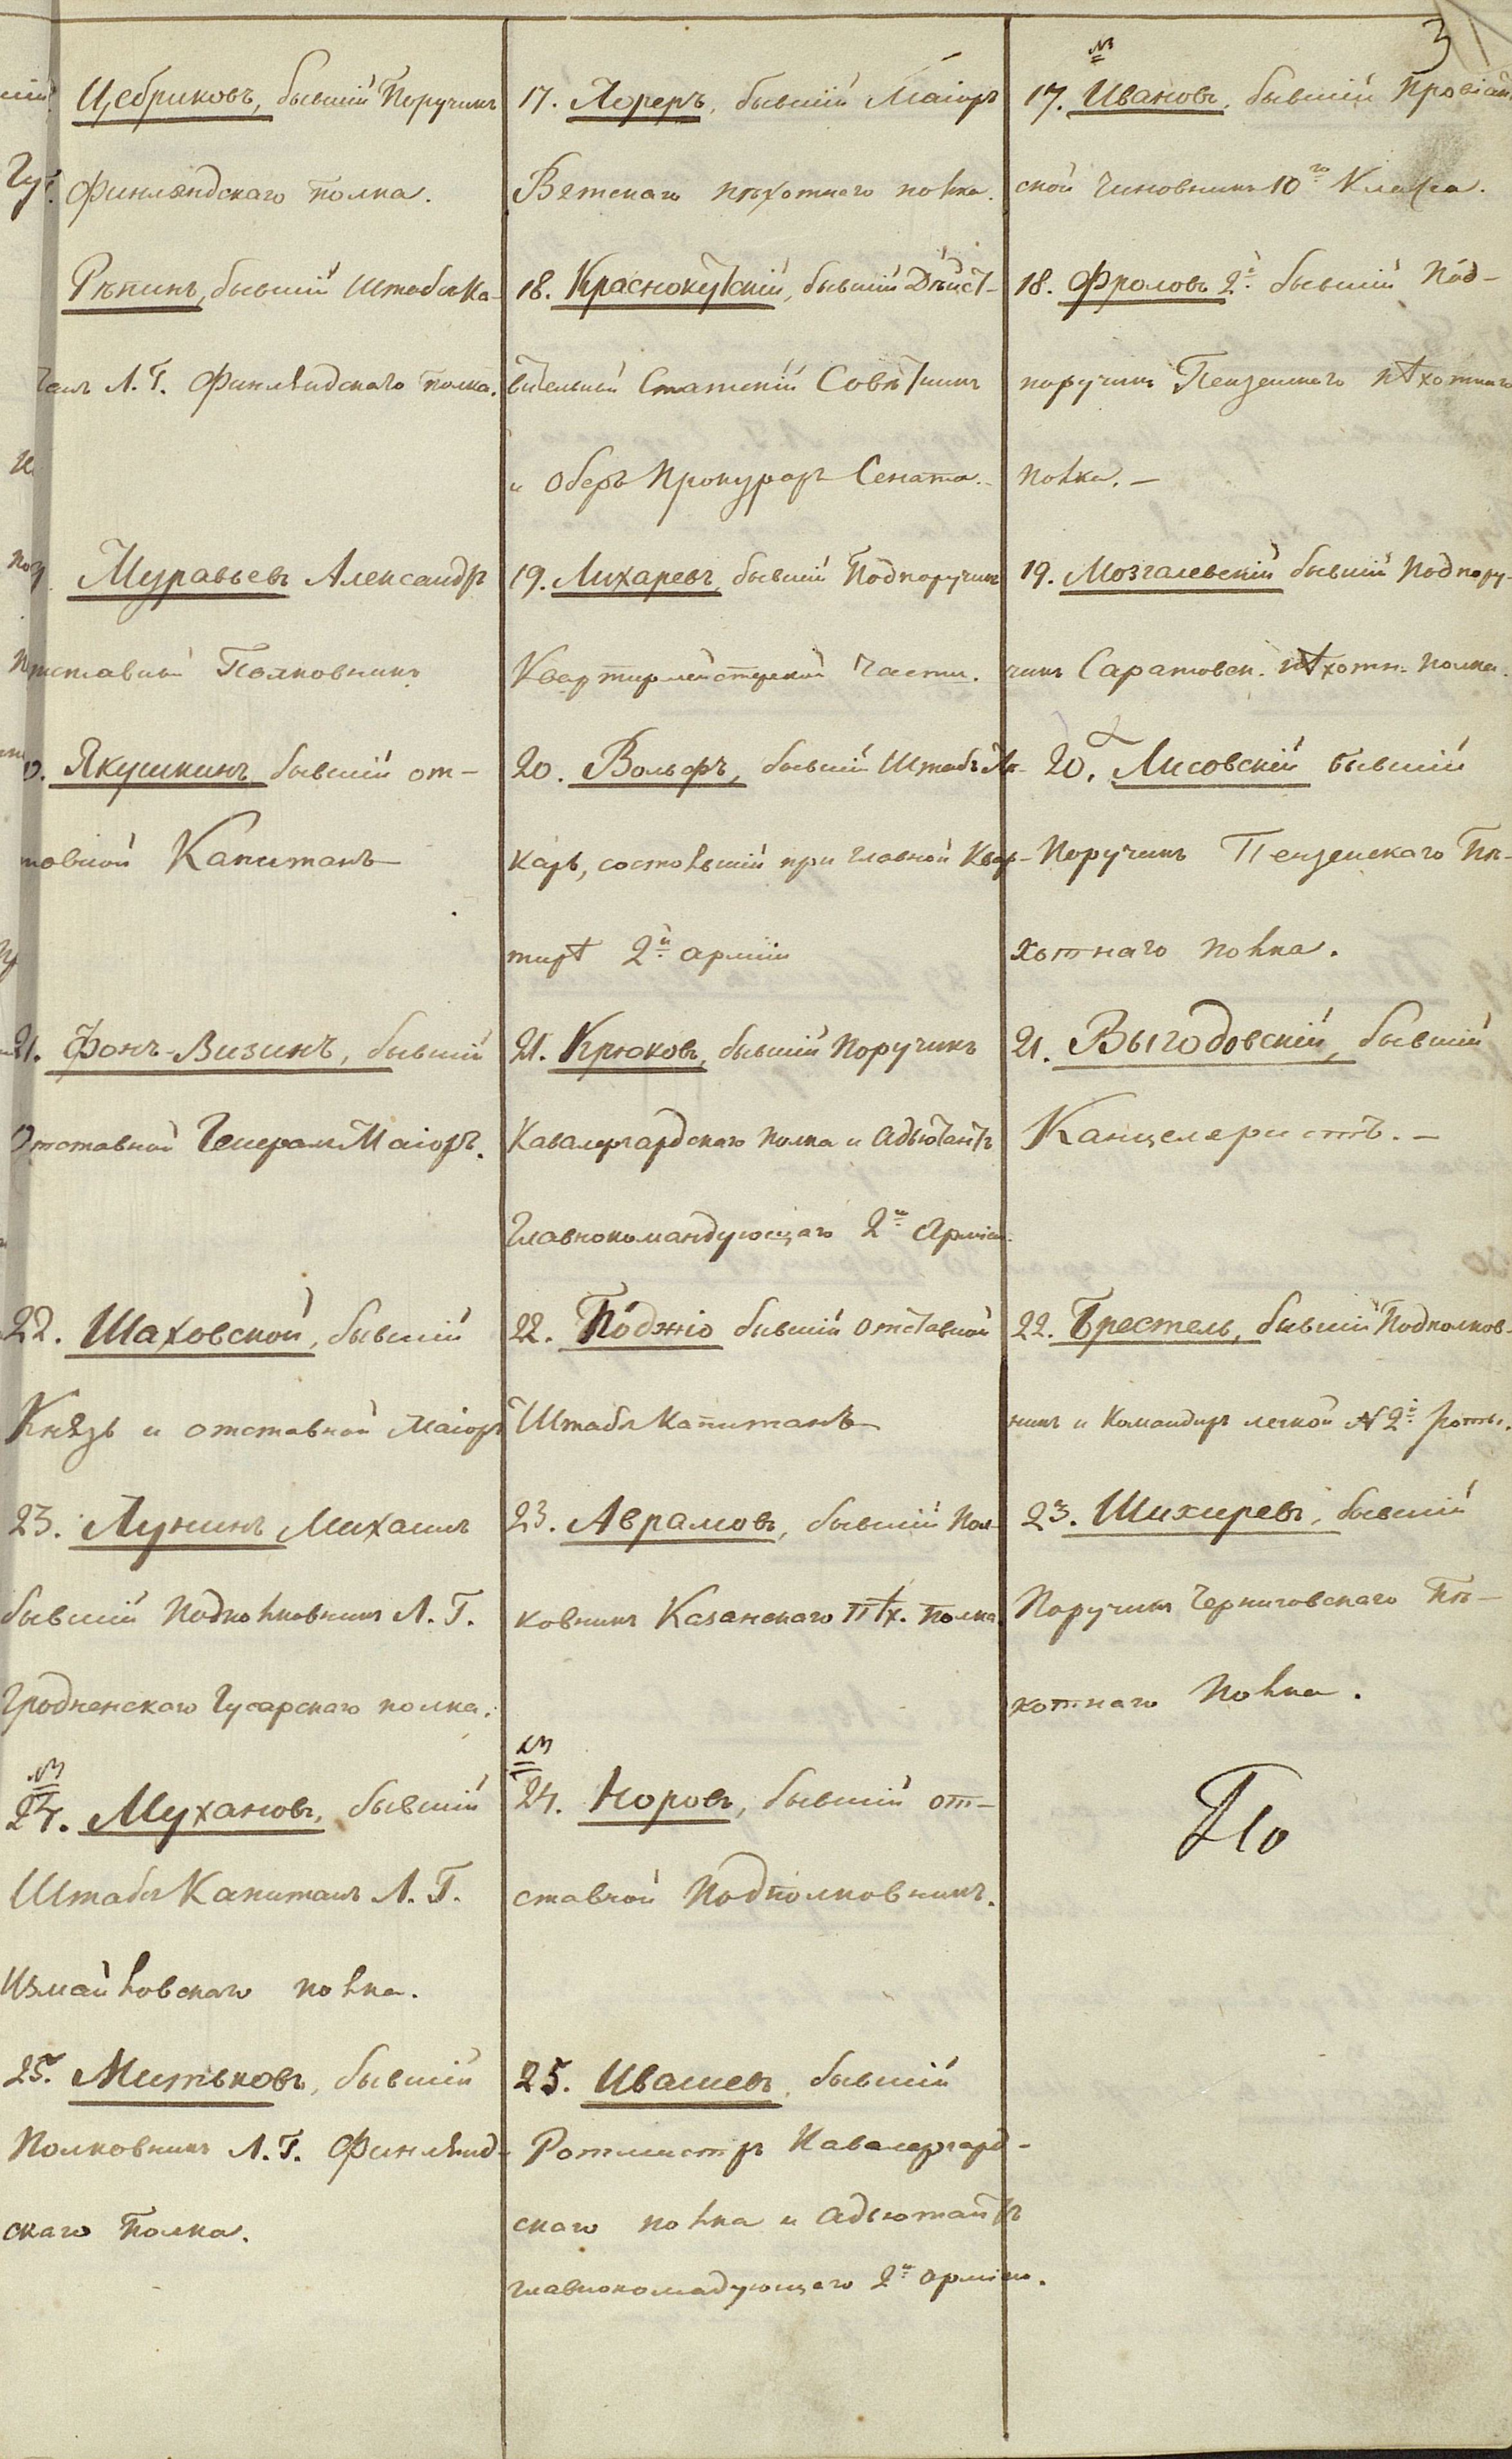 3
Цебриковъ, бывшій Поручикъ
Финляндскаго полка.
Рѣпинъ, бывшій Штабсъ Ка-
танъ Л. Г. Финляндскаго полка.
Муравьевъ Александръ
отставной Полковникъ
Якушкинъ бывшій от-
тавной Капитанъ
21. Фонъ-Визинъ, бывшій
Отставной Генералъ Маіоръ.
22. Шаховской, бывшій
Князь и отставной Маіоръ
23. Лунинъ Михаилъ
бывшій Подполковникъ Л. Г.
Гродненскаго Гусарскаго полка.
24. Мухановъ, бывшій
Штабсъ Капитанъ Л. Г.
Измайловскаго полка.
25. Митьковъ, бывшій
Полковникъ Л. Г. Финлянд-
скаго Полка.
17. Лореръ, бывшій Маіоръ
Вятскаго пѣхотнаго полка.
18. Краснокутскій, бывшій Дѣйст-
вительный Статскій Совѣтникъ
и Оберъ Прокуроръ Сената.
19. Лихаревъ, бывшій Подпоручикъ
Квартирмейстерской части.
20. Вольфъ, бывшій Штабъ Лѣ-
карь, состоявшій при Главной Квар-
тирѣ 2й арміи
21. Крюковъ, бывшій Поручикъ
Кавалергардскаго полка и Адъютантъ
Главнокомандующаго 2й Арміи.
22. Поджіо бывшій отставной
Штабсъ Капитанъ
23. Аврамовъ, бывшій Пол-
ковникъ Казанскаго Пѣх. Полка
24. Норовъ, бывшій от-
ставной Подполковникъ.
25. Ивашевъ, бывшій
Ротмистръ Кавалергард-
скаго полка и Адъютантъ
главнокомадующаго 2й арміи.
17. Ивановъ, бывшій Провіан
ской Чиновникъ 10го Класса.
18. Фроловъ 2й бывшій Под-
поручикъ Пензенскаго пѣхотнаго
полка. —
19. Мозгалевскій бывшій Подпору-
чикъ Саратовск. пѣхотн. полка.
20. Лисовскій бывшій
Поручикъ Пензенскаго Пѣ-
хотнаго полка.
21. Выгодовскій, бывшій
Канцеляристъ. —
22. Брестель, бывшій Подполков-
никъ и Командиръ легкой № 2й роты.
23. Шихиревъ, бывшій
Поручикъ Черниговскаго Пѣ-
хотнаго полка.
По